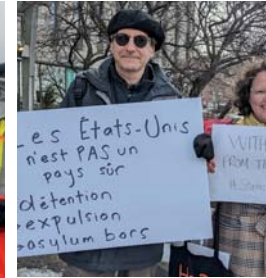 Les États-Unis
n'est PAS un
pays sûr
détention
expulsion
asylum bars
WITH
FROM TH